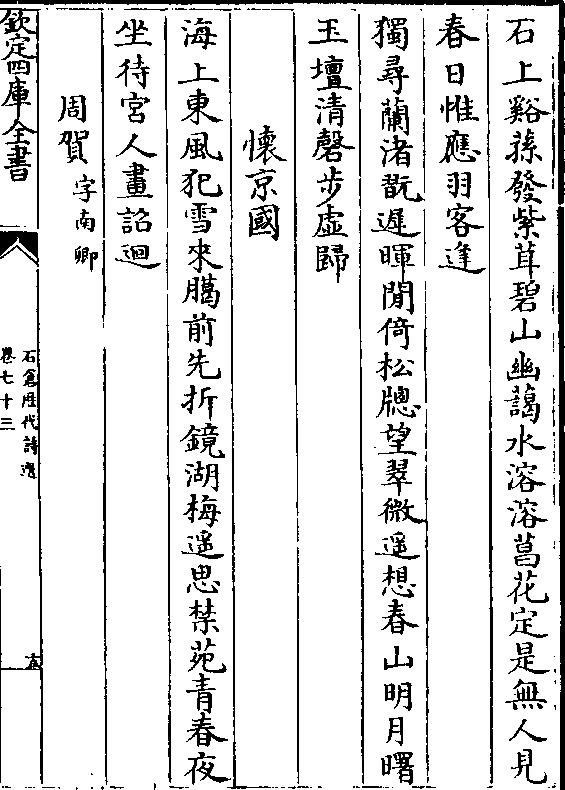 石上谿蓀發紫茸碧山幽藹水溶溶菖花定是無人見
春日惟應羽客逢
獨尋蘭渚翫遲暉閒倚松牕望翠微遥想春山明月曙
玉壇清磬步虛歸
懷京國
海上東風犯雪來臈前先折鏡湖梅遥思禁苑青春夜
坐待宮人畫詔迴
周賀字南卿
欽定四庫全書
石倉歷代詩選
卷七十三